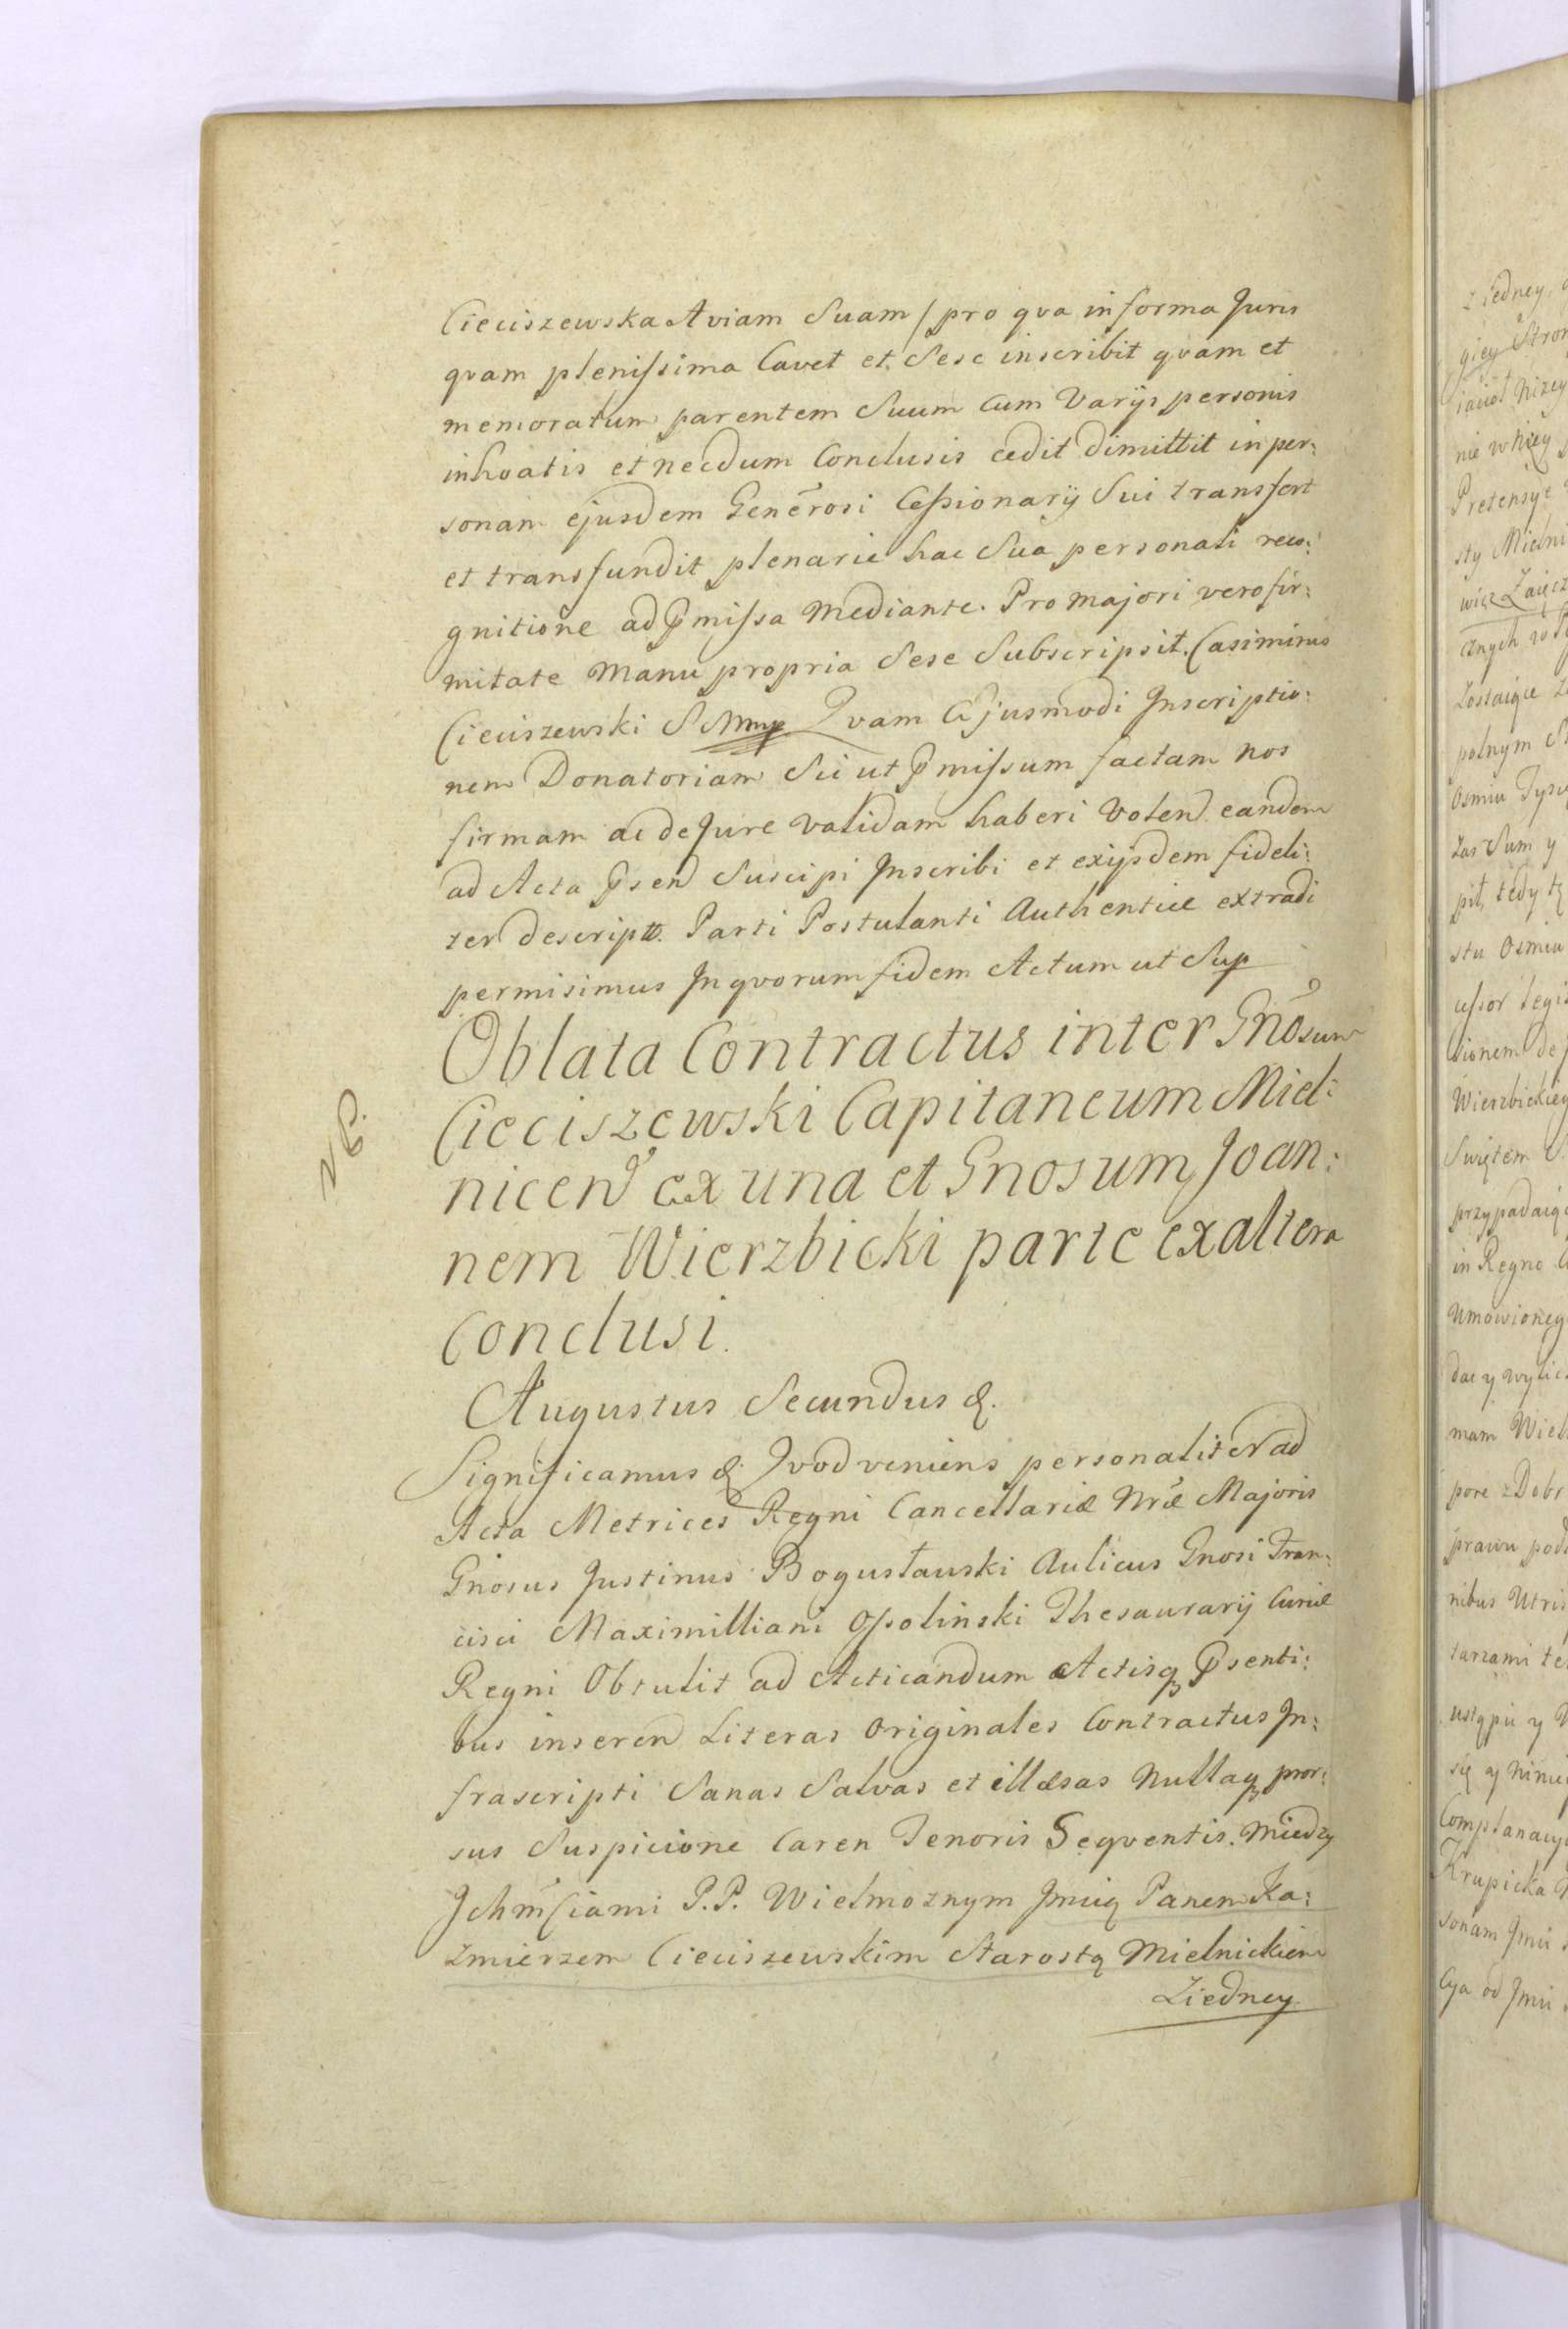 Cieciszewska Aviam Suam / pro qva in forma Juris
qvam plenissima Cavet et Sese inscribit qvam et
memoratum parentem Suum Cum Varÿs personis
inhoatis et necdum Conclusis cedit dimittit in per:
sonam ejusdem Genĕrosi Cessionarÿ Sui transfert
et transfundit plenarie hac Sua personali reco:
gnitione ad P̄missa Mediante. Pro majori vero fir:
mitate Manu propria Sese Subscripsit. Casimirus
Cieciszewski S Mmp Qvam Ejusmodi Inscriptio:
nem Donatoriam Sic ut P̄missum factam nos
firmam ac de Jure Validam haberi Volend eandem
ad Acta P̄send Suscipi Inscribi et exijsdem fideli:
ter descriptt. Parti Postulanti Authentice extradi
permisimus In qvorum fidem Actum ut Sup
Oblata Contractus inter Gnōsum
Cieciszewski Capitaneum Miel:
nicen ex una et Gnosum Joan:
nem Wierzbicki parte ex altera
Conclusi.
NB.
Augustus Secundus &.
Significamus &. Qvod veniens personaliter ad
Acta Metrices Regni Cancellariæ Nræ Majoris
Gnosus Justinus Bogusławski Aulicus Gnosi Fran:
cisci Maximilliani Ossolinski Thesaurarÿ Curiæ
Regni Obtulit ad Acticandum Actisq P̄senti:
bus inseren Literas Originales Contractus In:
frascripti Sanas Salvas et illæsas Nullaq pror:
sus Suspicione Caren Tenoris Seqventis. Miedzy
Ichm̄Ciami P.P. Wielmoznym Jmcią Panem Ka:
zmierzem Cieciszewskim Starostą Mielnickiem
Ziedney
z iedney,
giey Stron
nie w niey
Pretensÿe
sty Mielni
wicz Zaięcz
Zostaiące
polnym
Osmiu Tysię
zas Sum y
pił, tedy
stu Osmiu
cessor
Wierzbickieg
Swiętem S.
przypadaią
in Regno
Umowioneg
dac y wylic
mam Wiel
pore z Dobr
prawu pod
nibus Utris
tarzami
ustąpic y
Complanacy
Krupicka
sonam Jmci
Cya od Jmci